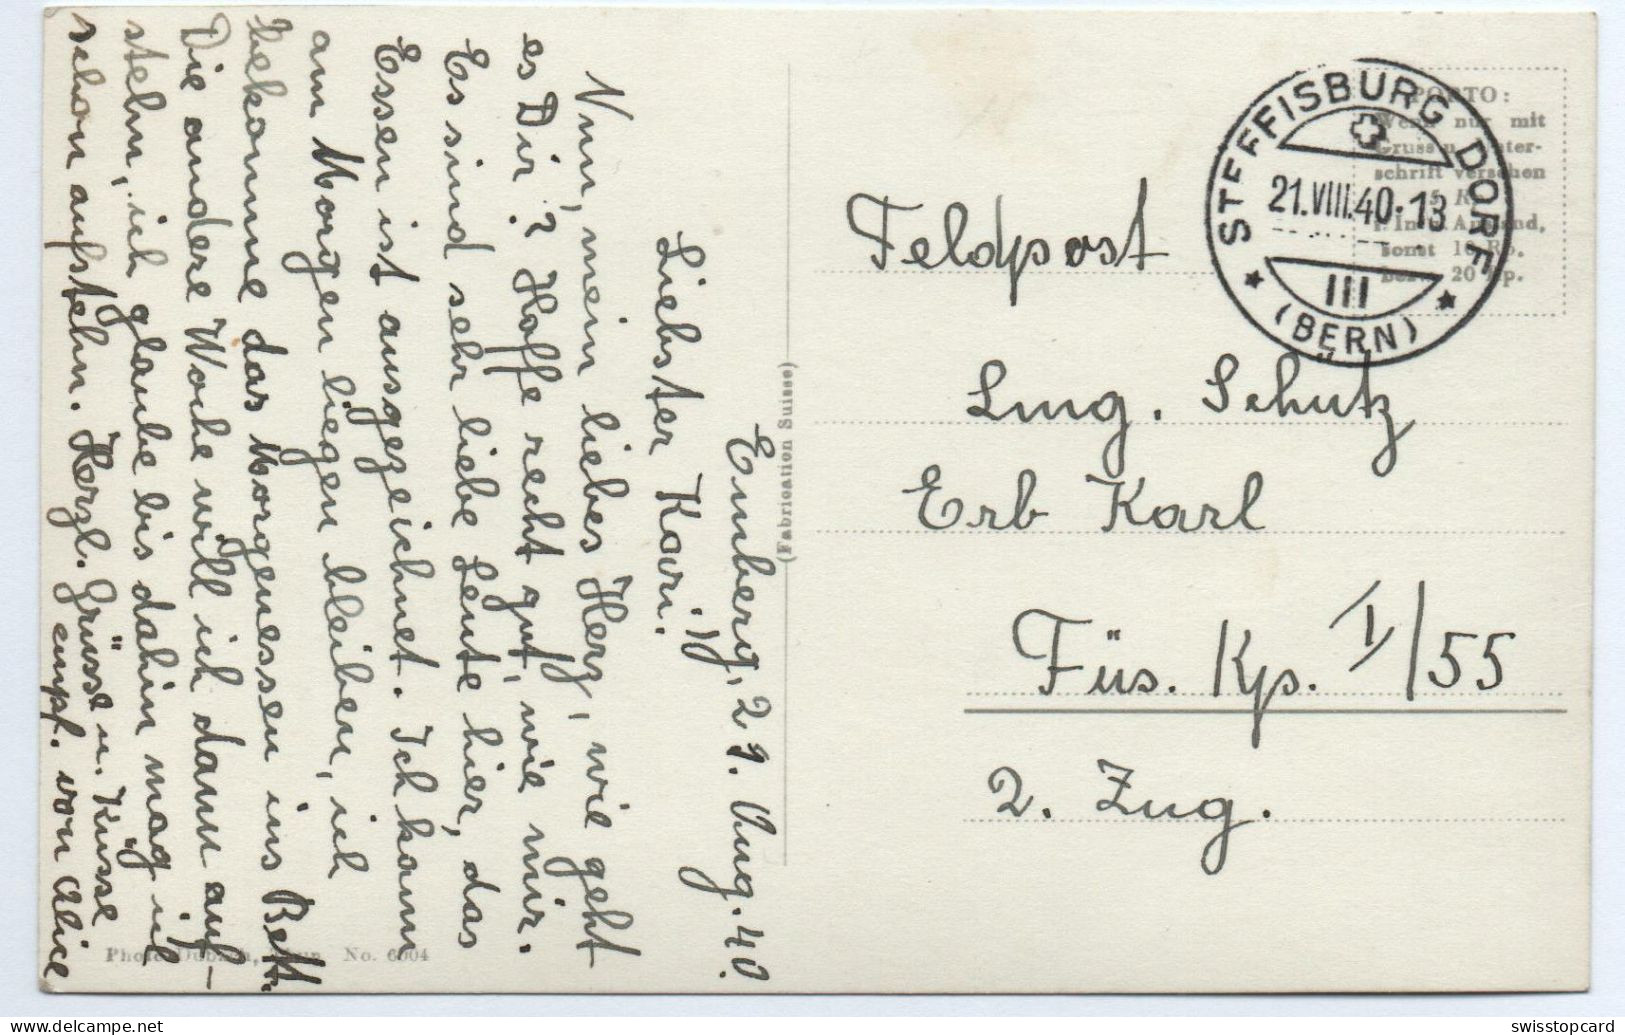 Emberg, 21. Aug. 40.
Liebster Kari!
Nun, mein liebes Herz, wie geht
es Dir? Hoffe recht gut, wie mir.
Es sind sehr liebe Leute hier, das
Essen ist ausgezeichnet. Ich kann
am Morgen liegen bleiben, ich
bekomme das Morgenessen ins Bett.
Die andere Woche will ich dann auf-
stehn, ich glaube bis dahin mag ich
schon aufstehn. Herzl. Grüsse u. Küsse
empf. von Alice
Photo Dubach, Thun No. 6004
(Fabrication Suisse)
STEFFISBURG DORF
21.VIII.40-13
III
(BERN)
PORTO:
Wenn nur mit
Gruss u. Unter-
schrift versehen
5 Rp.
i. Inld. Ausland,
sonst 10 Rp.
20 Rp.
Feldpost
Schütz
Erb Karl
Füs. Kp. I/55
2. Zug.
swisstopcard